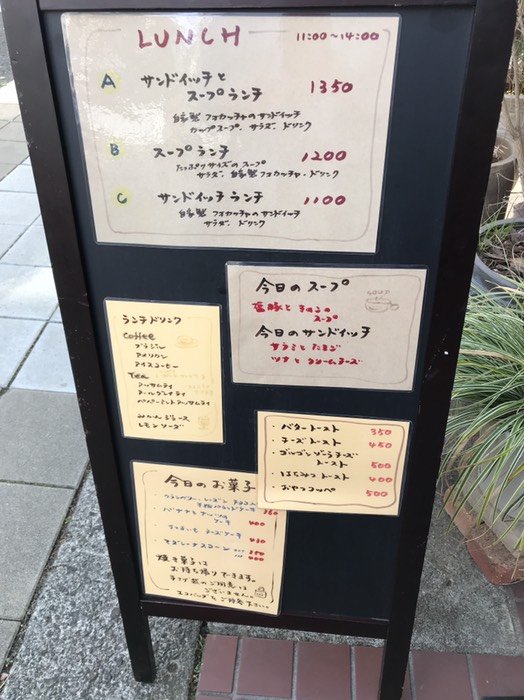 LUNCH 11:00～14:00
A サンドイッチと
スープランチ 1350
自家製 フォカッチャのサンドイッチ
カップスープ、サラダ、ドリンク
B スープランチ 1200
たっぷりサイズのスープ
サラダ、自家製フォカッチャ・ドリンク
C サンドイッチランチ 1100
自家製 フォカッチャのサンドイッチ
サラダ、ドリンク
今日のスープ
塩豚ときのこの
スープ
今日のサンドイッチ
サラミとたまご
ツナとクリームチーズ
ランチドリンク
Coffee
ブラジル
アメリカン
アイスコーヒー
Tea
アッサムティ
アールグレイティ
ペパーミントアッサムティ
みかんジュース
レモンソーダ
・バタートースト 350
・チーズトースト 450
・ゴルゴンゾーラチーズ
トースト 500
・はちみつトースト 400
・おやつコッペ 500
今日のお菓子
クランベリー、レーズン
ケーキ 360
ケーキ 400
チーズケーキ 430
スコーン 350
400
焼き菓子は
お持ち帰りできます。
ございません。